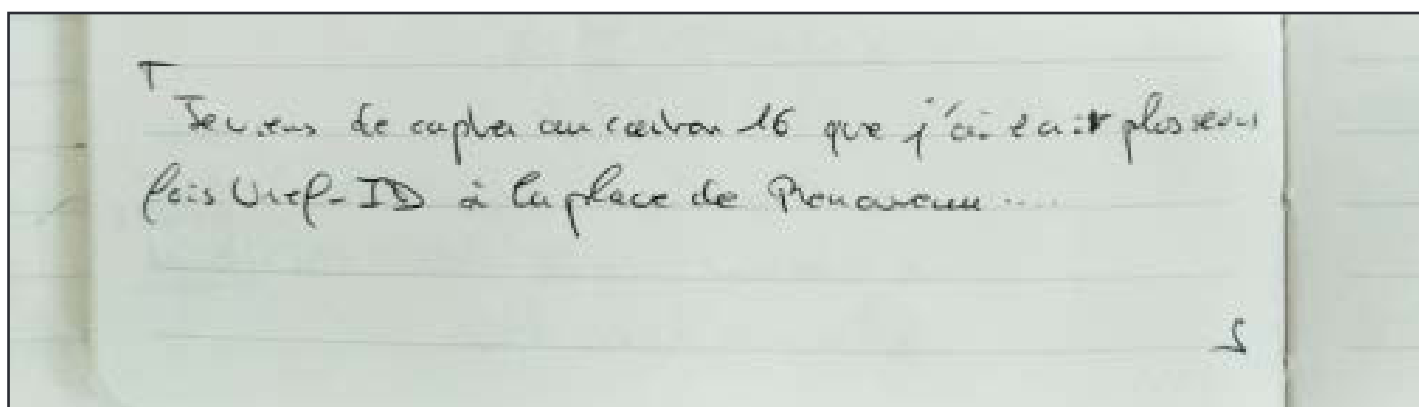 Je viens de capter au carton 16 que j'ai écrit plusieurs
fois Uref-ID à la place de